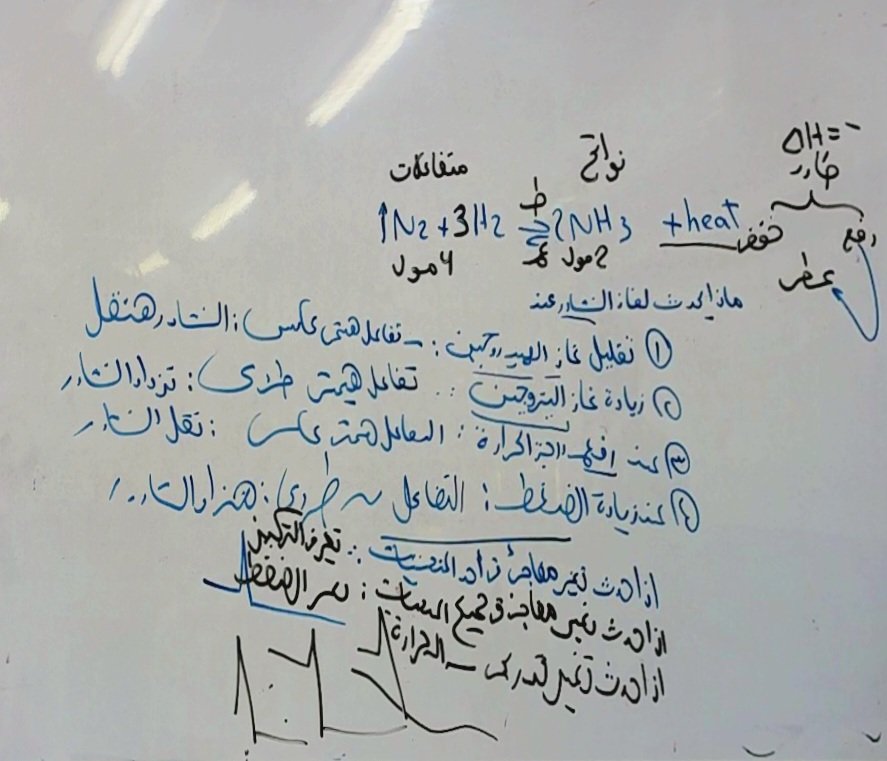 ΔH = -
طارد
متفاعلات نواتج
1N2 + 3H2 ⇌ 2NH3 + heat
ط
خفض رفع
4 مول 2 مول
ماذا يحدث لغاز النشادر عند
① تقليل غاز الهيدروجين: تفاعل هيتم عكسي: النشادر هتقل
② زيادة غاز النيتروجين: تفاعل هيمشي طردي: تزداد النشادر
③ عند رفع درجة الحرارة: التفاعل عكسي: تقل النشادر
④ عند زيادة الضغط: التفاعل ~ طردي: هتزداد النشادر
اذا حدث تغير مفاجئ في أحد المنحنيات: تغير التركيز
اذا حدث تغير مفاجئ في جميع المنحنيات: تغير الضغط
اذا حدث تغير تدريجي - الحرارة